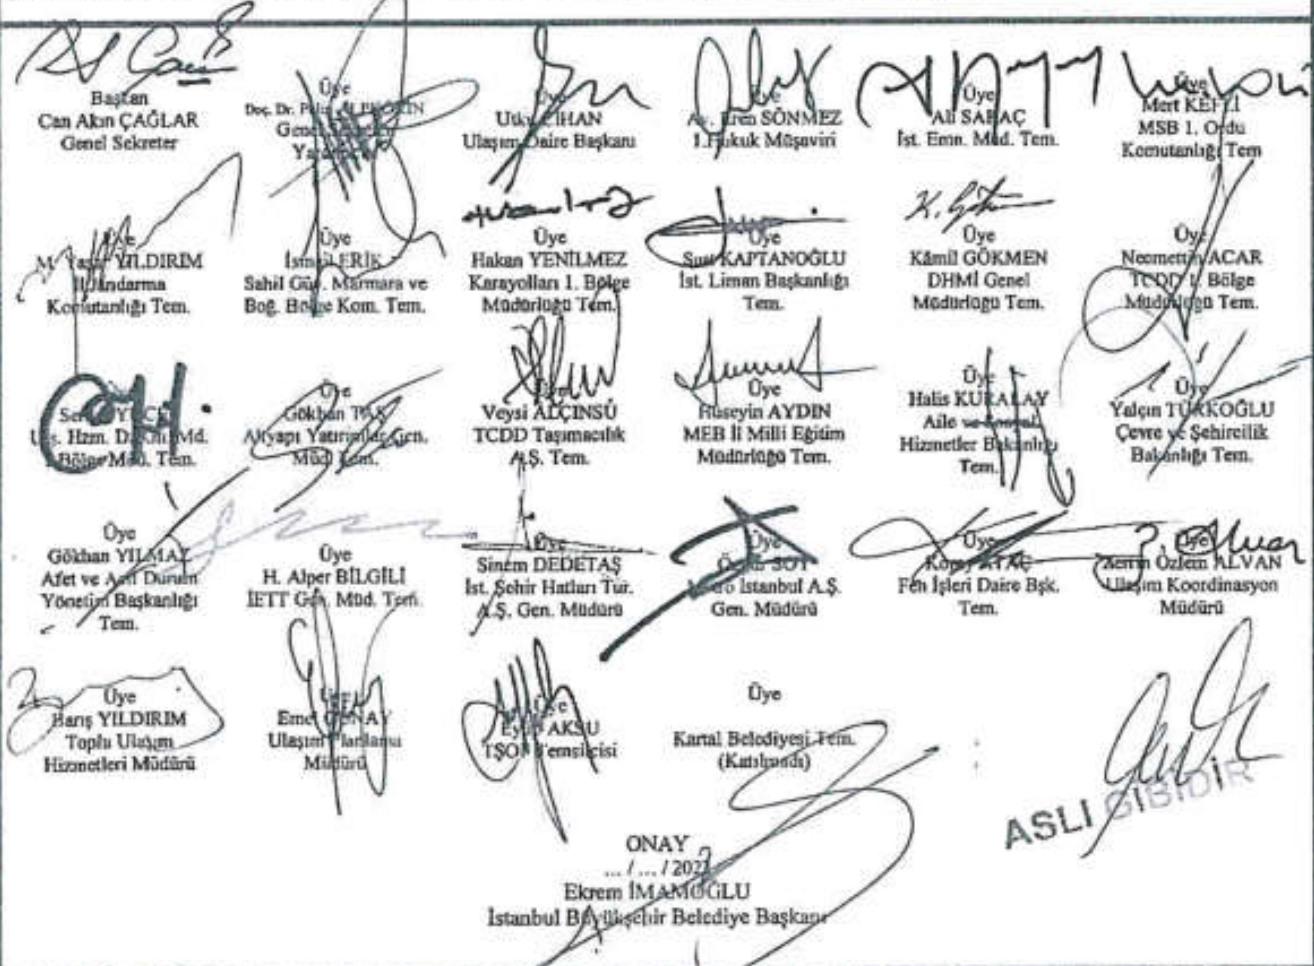 Başkan
Can Akın ÇAĞLAR
Genel Sekreter
Üye
Doç. Dr.
Genel
Üye
Utku CİHAN
Ulaşım Daire Başkanı
Av. Eren SÖNMEZ
1.Hukuk Müşaviri
Üye
Ali SARAÇ
İst. Emn. Müd. Tem.
Üye
Mert
MSB 1. Ordu
Komutanlığı Tem
Üye
M. Yaşar YILDIRIM
İl Jandarma
Komutanlığı Tem.
Üye
İsmail ERİK
Sahil Güv. Marmara ve
Boğ. Bölge Kom. Tem.
Üye
Hakan YENİLMEZ
Karayolları 1. Bölge
Müdürlüğü Tem.
Üye
Suat KAPTANOĞLU
İst. Liman Başkanlığı
Tem.
K. Gökmen
Üye
Kâmil GÖKMEN
DHMİ Genel
Müdürlüğü Tem.
Üye
Necmettin ACAR
TCDD 1. Bölge
Müdürlüğü Tem.
Hzm.
Bölge Müd. Tem.
Üye
Gökhan TAŞ
Altyapı Yatırımlar Gen.
Müd. Tem.
Üye
Veysi ALÇINSÜ
TCDD Taşımacılık
A.Ş. Tem.
Üye
Hüseyin AYDIN
MEB İl Milli Eğitim
Müdürlüğü Tem.
Üye
Halis KURALAY
Aile ve Sosyal
Hizmetler Bakanlığı
Tem.
Üye
Yalçın TÜRKOĞLU
Çevre ve Şehircilik
Bakanlığı Tem.
Üye
Gökhan YILMAZ
Afet ve Acil Durum
Yönetim Başkanlığı
Tem.
Üye
H. Alper BİLGİLİ
İETT Gen. Müd. Tem.
Üye
Sinem DEDETAŞ
İst. Şehir Hatları Tur.
A.Ş. Gen. Müdürü
Üye
SOY
Metro İstanbul A.Ş.
Gen. Müdürü
Üye
ATAÇ
Fen İşleri Daire Bşk.
Tem.
Özlem ALVAN
Ulaşım Koordinasyon
Müdürü
Üye
Barış YILDIRIM
Toplu Ulaşım
Hizmetleri Müdürü
Üye
GÜNAY
Ulaşım Planlama
Müdürü
Üye
Eyüp AKSU
TŞOF Temsilcisi
Üye
Kartal Belediyesi Tem.
(Katılmadı)
ASLI GİBİDİR
ONAY
... / ... / 202
Ekrem İMAMOĞLU
İstanbul Büyükşehir Belediye Başkanı